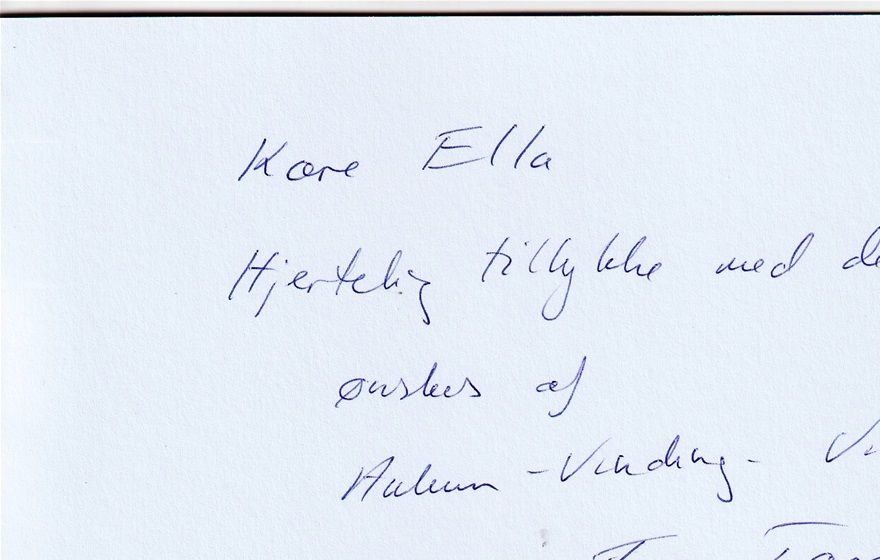 Kære Ella
Hjertelig tillykke med de
ønskes af
Aulum - Vinding - Vi